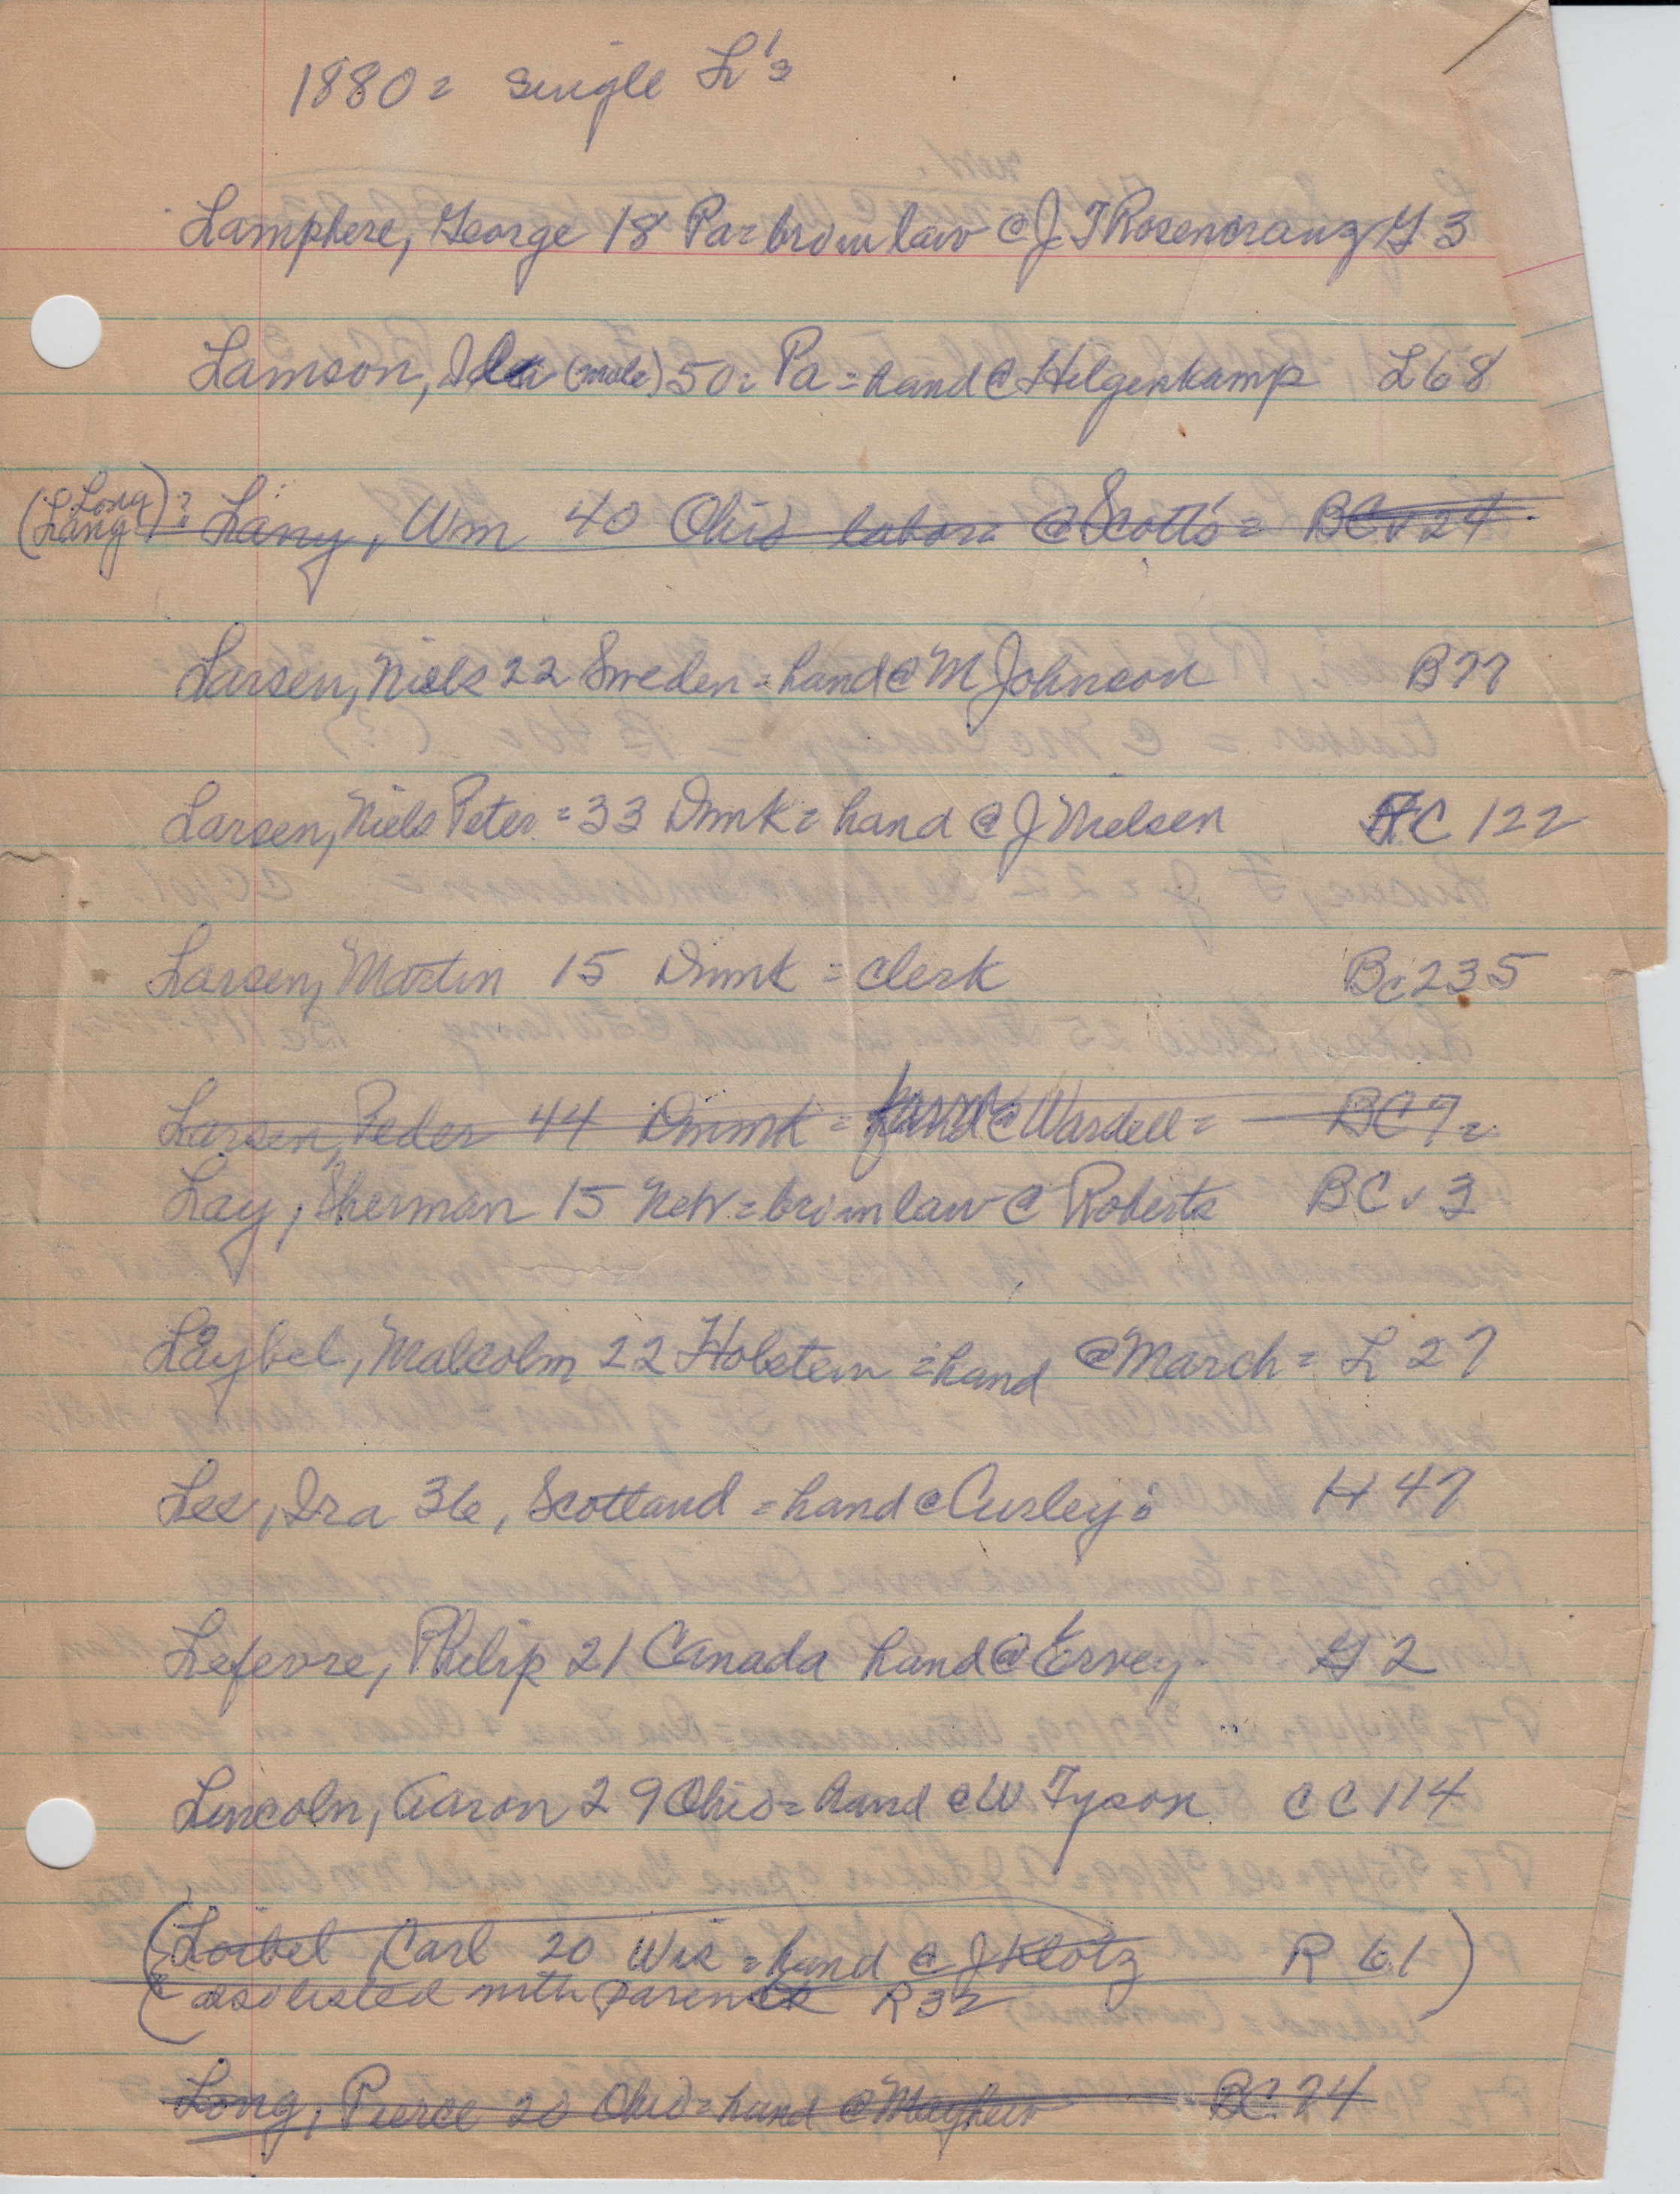 1880 = single L's
Lamphere, George 18 Pa = bro in law @ J T Rosencranz G 3
Lamson, Ila (male) 50 = Pa = hand @ Hilgenkamp L 68
(Long
Lang)? Lany, Wm 40 Ohio labor = @ Scotts = BC v 24
Larsen, Niels 22 Sweden = hand @ M Johnson B 77
Larsen, Niels Peter = 33 Dnmk = hand @ J Nielsen C 122
Larsen, Martin 15 Dnmk = clerk Bc 235
Larsen, Peder 44 Dnmk = @ Wardell = BC 7 =
Lay, Sherman 15 Neb = bro in law @ Roberts BC v 3
Laybel, Malcolm 22 Holstein = hand @ March = L 27
Lee, Ira 36, Scotland = hand @ Curley's H 47
Lefevre, Philip 21 Canada hand @ Ervey G 2
Lincoln, Aaron 29 Ohio = hand @ W Tyson CC 114
(Loibel Carl 20 Wis = hand @ J Klotz R 61)
(also listed with parents R 32
Long, Pierce 20 Ohio = hand @ Mayhew BC 74